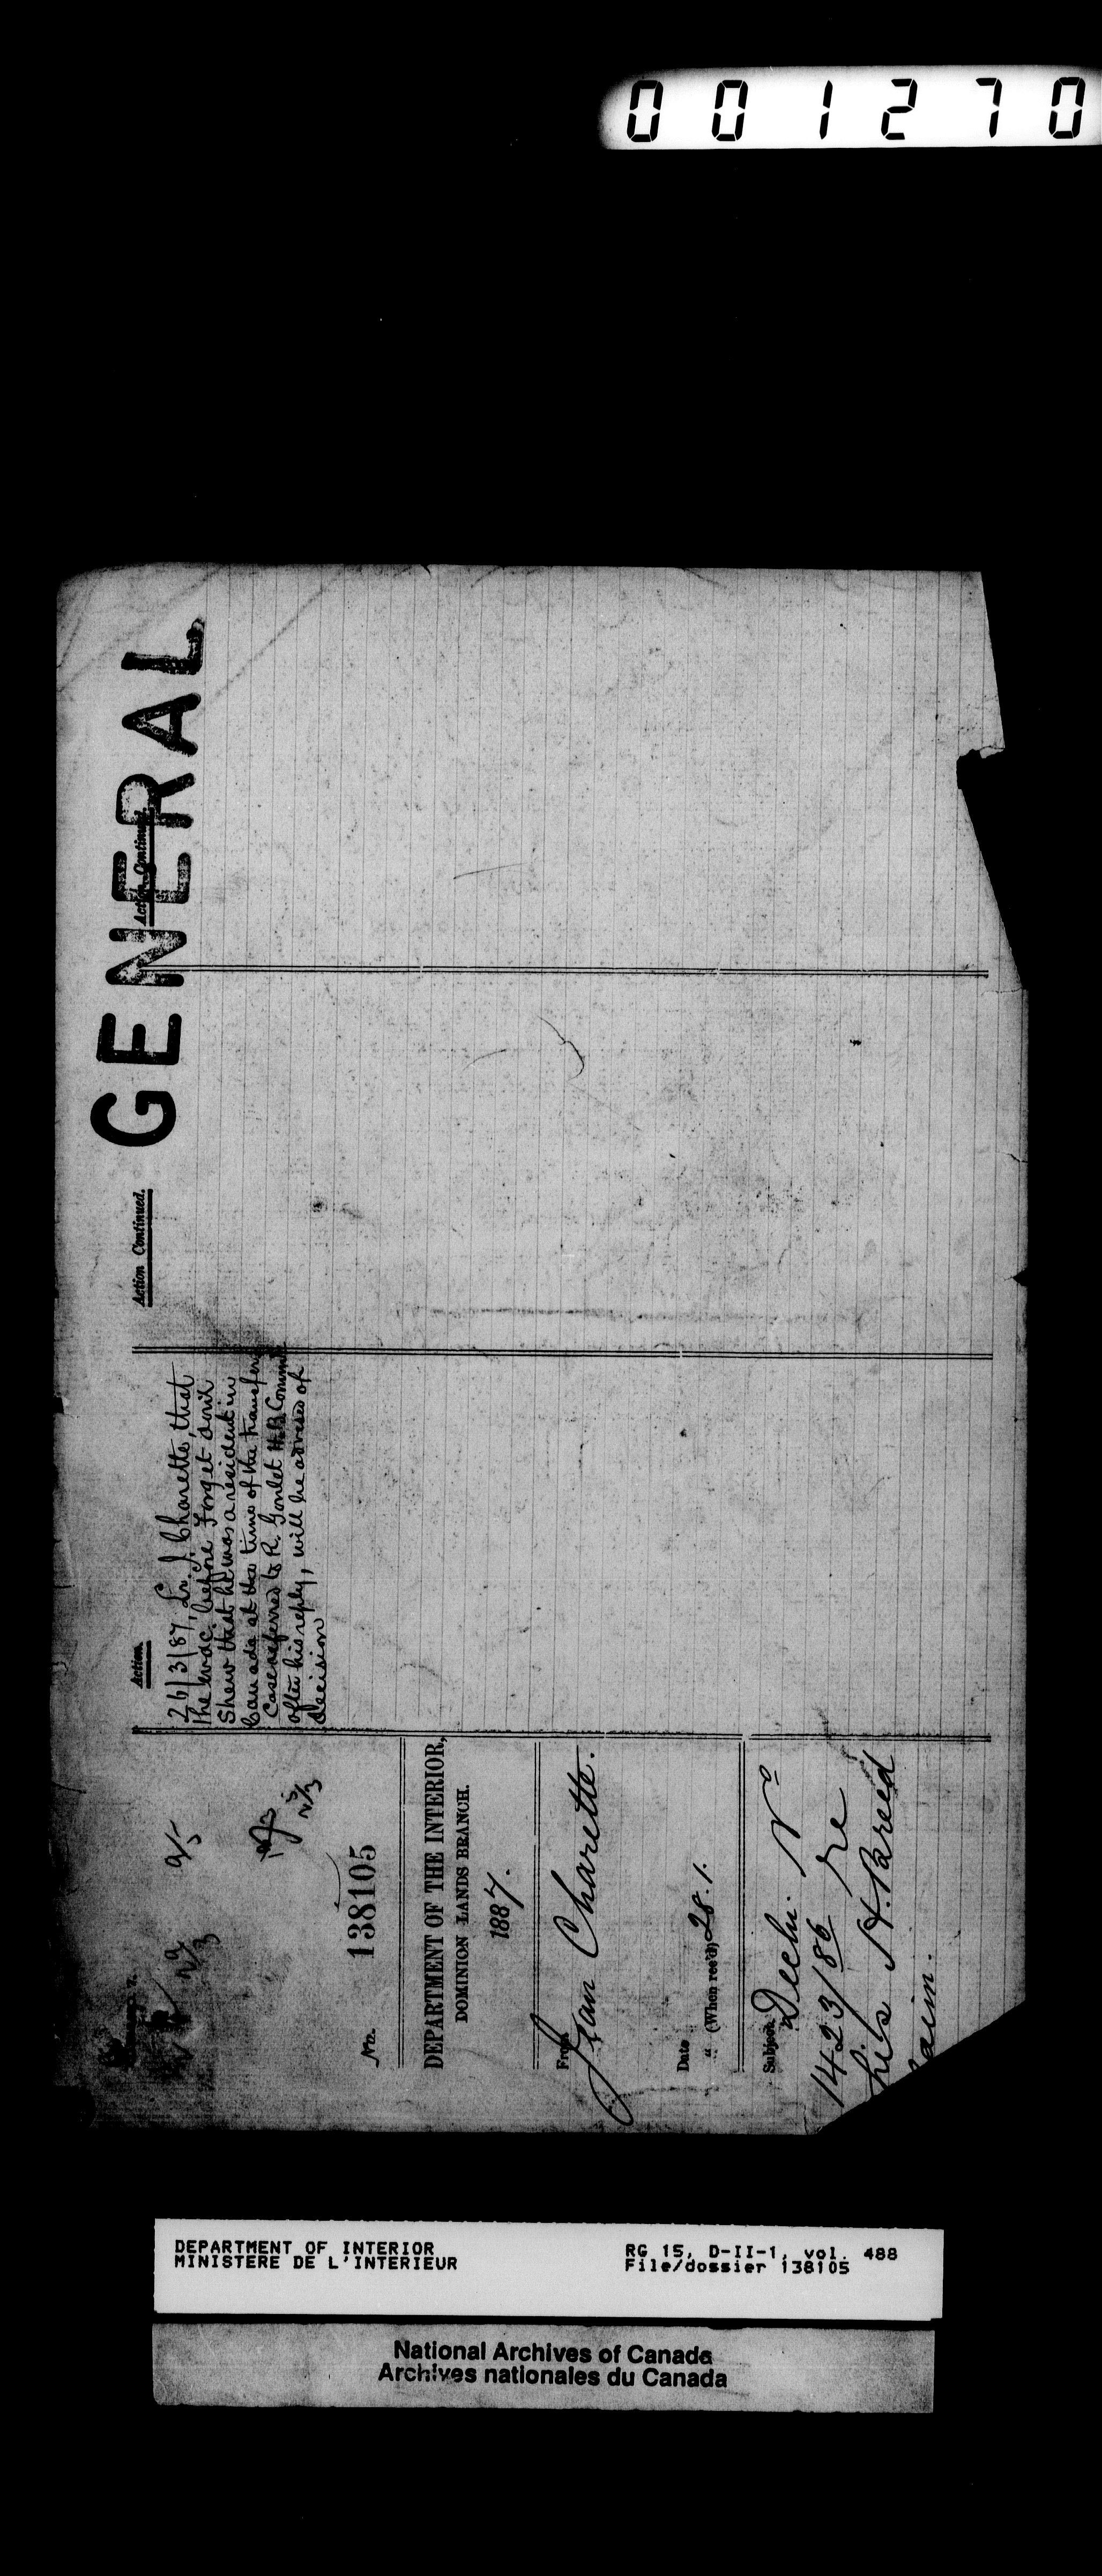 001270
GENERAL
Action.
26/3/87, Lr. J. Charette, that
the evdc. before Forget don't
Shew that he was a resident in
Canada at the time of the transfer.
Case referred to R. Goulet H.B. Commr
after his reply, will be advised of
decision
Action Continued.
Action Continued.
No. 138105
DEPARTMENT OF THE INTERIOR,
DOMINION LANDS BRANCH.
1887.
From
Jean Charette.
Date
" (When rec'd) 28.1.
Subject,
Decln. No
1423/86 re
his H. Breed
DEPARTMENT OF INTERIOR
MINISTERE DE L'INTERIEUR
RG 15, D-II-1, vol. 488
File/dossier 138105
National Archives of Canada
Archives nationales du Canada